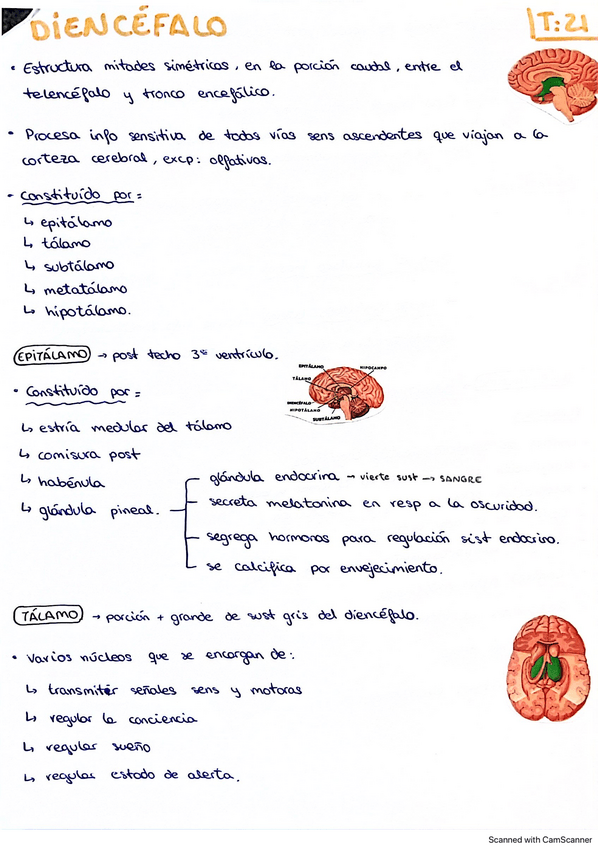 DIENCÉFALO
T:21
• Estructura mitades simétricas, en la porción caudal, entre el
telencéfalo y tronco encefálico.
• Procesa info sensitiva de todas vías sens ascendentes que viajan a la
corteza cerebral, excp: olfativas.
- Constituído por:
↳ epitálamo
↳ tálamo
↳ subtálamo
↳ metatálamo
↳ hipotálamo.
EPITÁLAMO → post techo 3er ventrículo.
• Constituído por:
↳ estría medular del tálamo
↳ comisura post
↳ habénula
↳ glándula pineal.
glándula endocrina → vierte sust → SANGRE
secreta melatonina en resp a la oscuridad.
segrega hormonas para regulación sist endocrino.
se calcifica por envejecimiento.
EPITÁLAMO
HIPOCAMPO
TÁLAMO
DIENCÉFALO
HIPOTÁLAMO
SUBTÁLAMO
TÁLAMO → porción + grande de sust gris del diencéfalo.
• Varios núcleos que se encargan de:
↳ transmitir señales sens y motoras
↳ regular la conciencia
↳ regular sueño
↳ regular estado de alerta.
Scanned with CamScanner